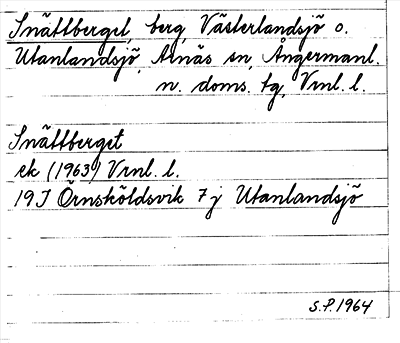 Snättberget, berg, Västerlandsjö o.
Utanlandsjö, Arnäs sn, Ångermanl.
n. doms. tg, Vrnl. l.
Snättberget
ek (1963) Vrnl. l.
19J Örnsköldsvik 7j Utanlandsjö
S.P. 1964